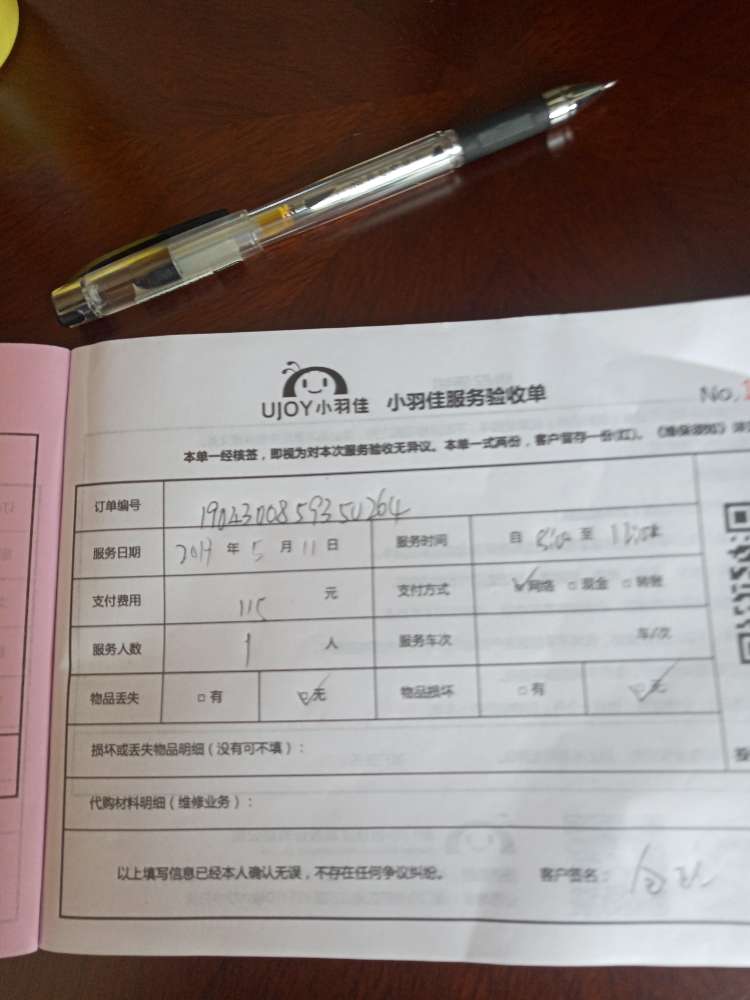 UJOY小羽佳 小羽佳服务验收单 No.1
本单一经核签，即视为对本次服务验收无异议。本单一式两份，客户留存一份(红)。
订单编号 1904300859350264
服务日期 2019 年 5 月 11 日 服务时间 自 至
支付费用 115 元 支付方式 网络 现金 转账
服务人数 1 人 服务车次 车/次
物品丢失 有 无 物品损坏 有 无
损坏或丢失物品明细（没有可不填）：
代购材料明细（维修业务）：
以上填写信息已经本人确认无误，不存在任何争议纠纷。 客户签名：